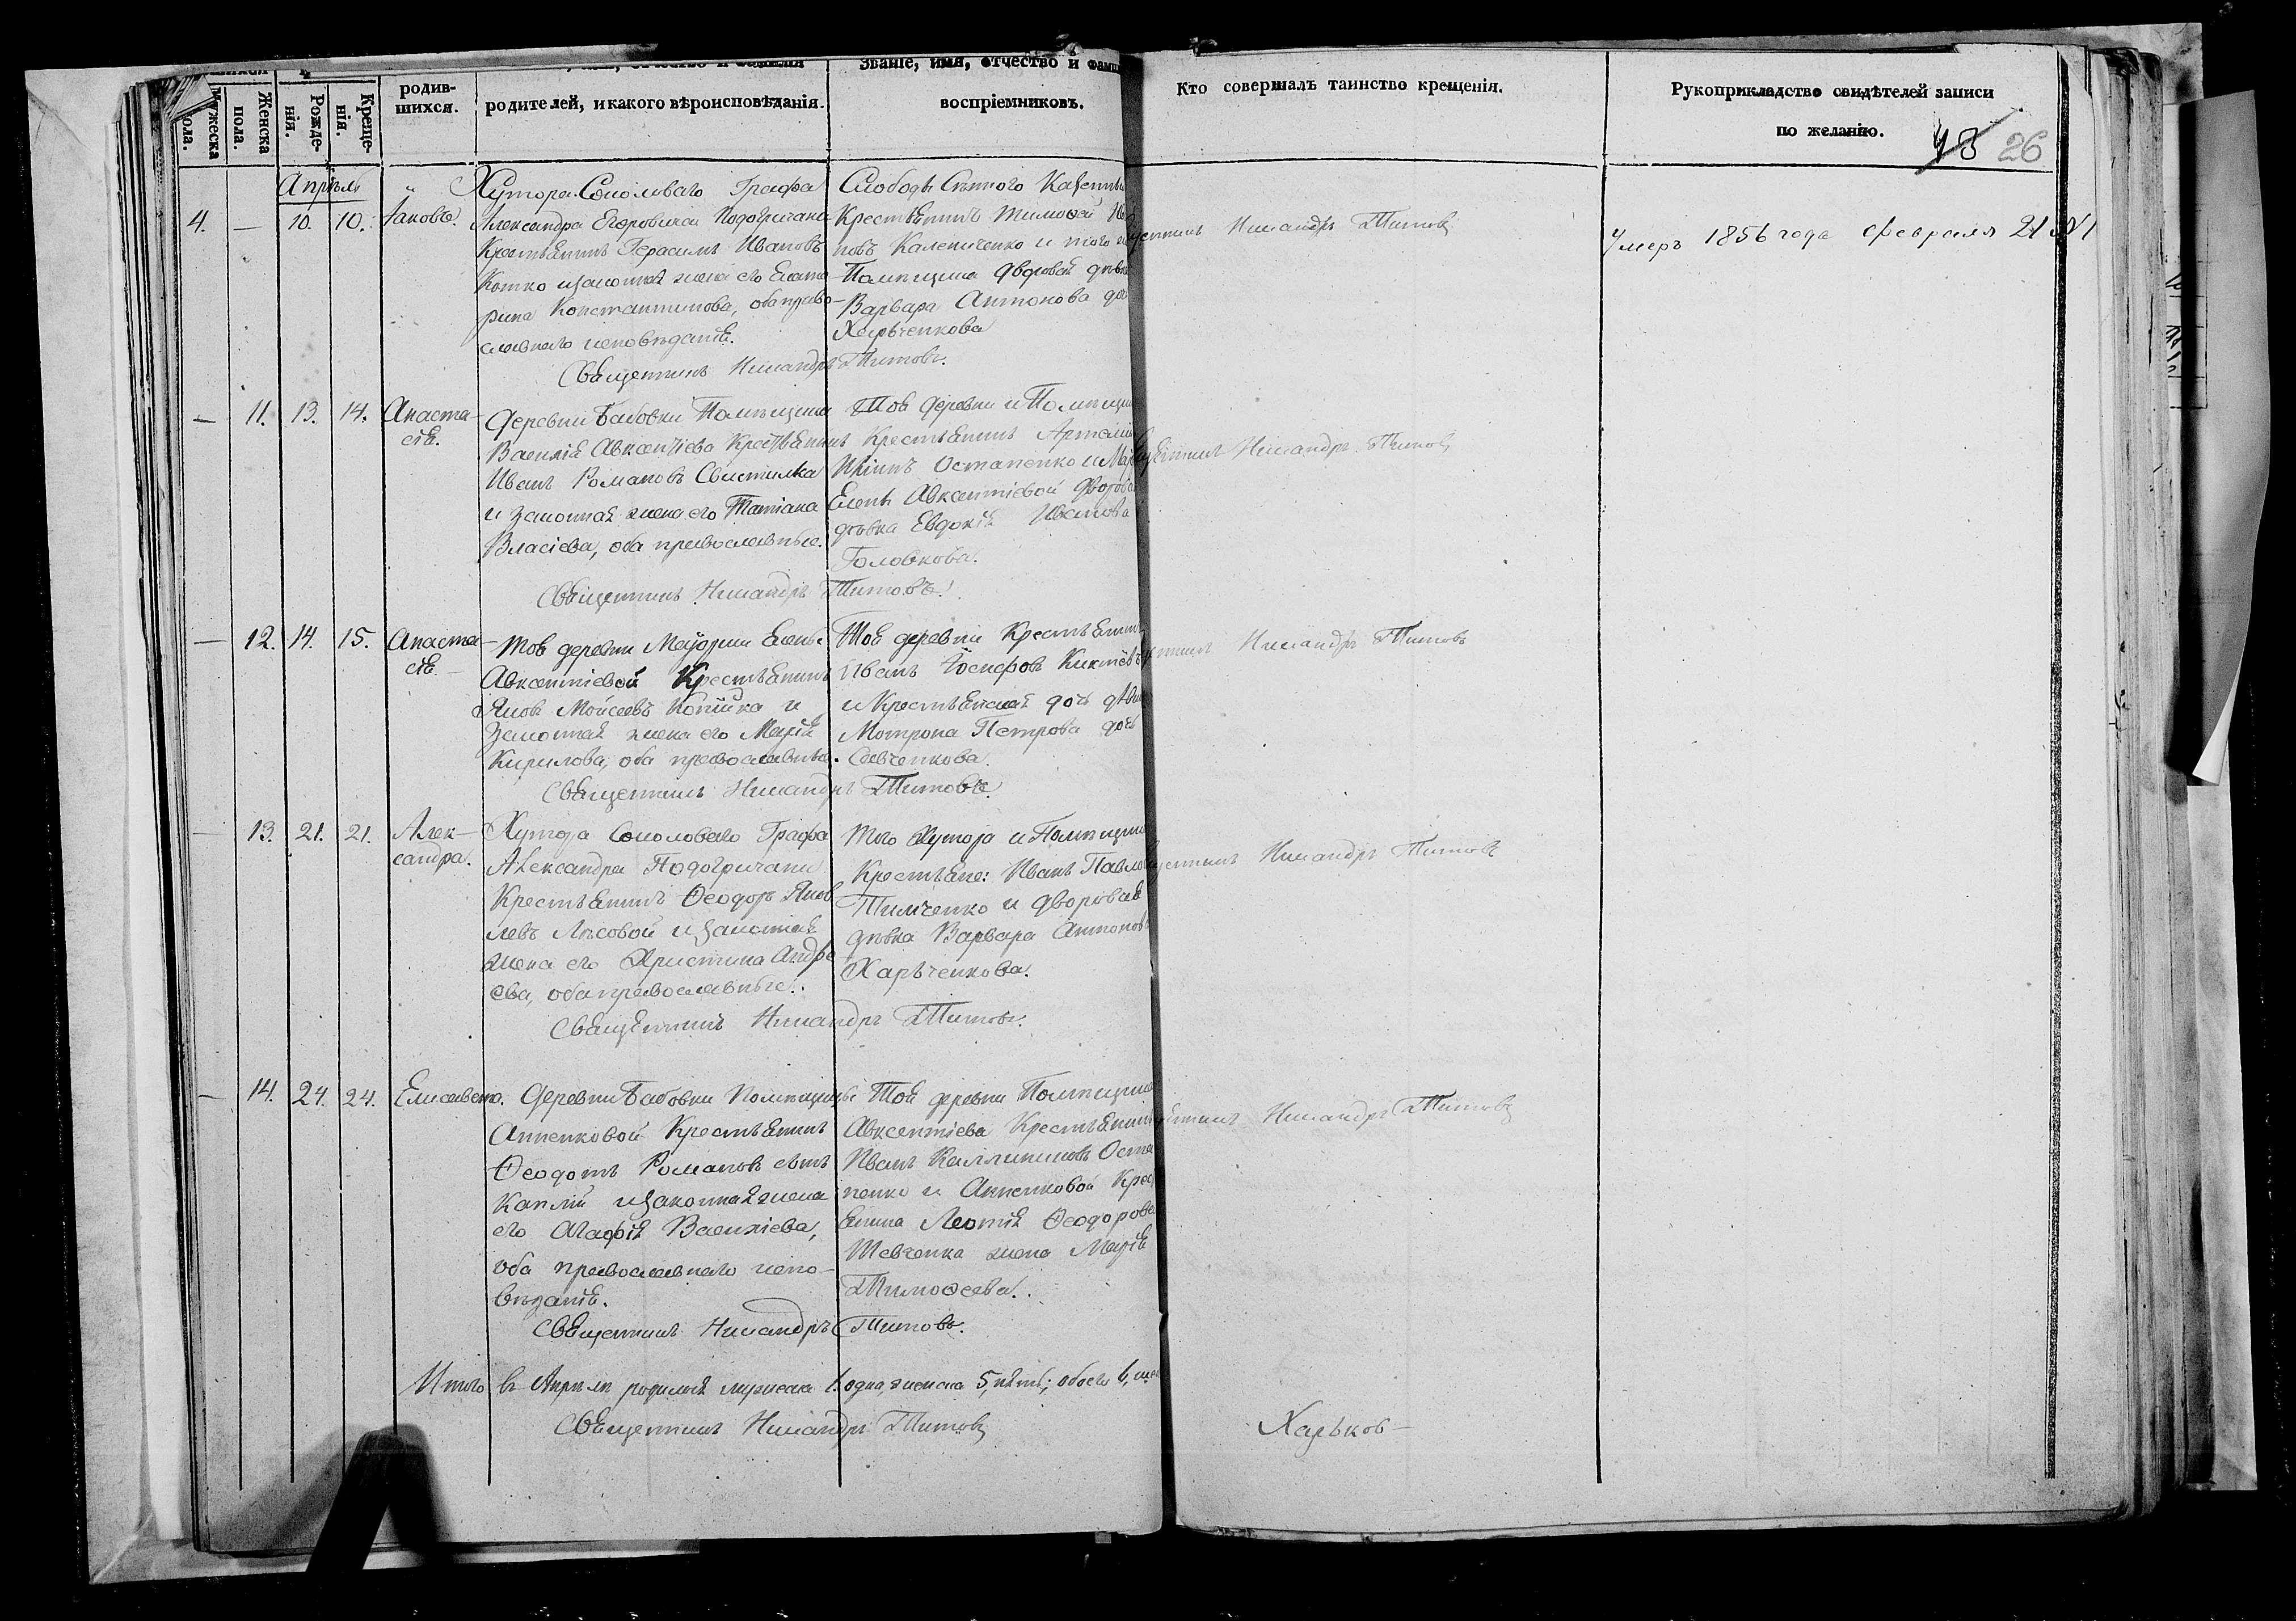 родив-
шихся.
родителей, и какого вѣроисповѣданія.
Званіе, имя, отчество и
воспріемниковъ.
Кто совершалъ таинство крещенія.
Рукоприкладство свидѣтелей записи
по желанію.
Мужеска пола.
Женска пола.
Рожде-
нія.
Креще-
нія.
43 26
Апрѣль
4. — 10. 10. Іаковъ.
Хутора Соколоваго Графа
Александра Егоровича Подогричани
Крестьянинъ Герасимъ Ивановъ
Котко и законная жена его Екате-
рина Константинова, оба право-
славнаго исповѣданія.
Священникъ Никандръ Титовъ.
Слободы Казенный
Крестьянинъ Тимофей
новъ Калениченко и того
Помѣщика дворовая дѣвка
Варвара Антонова доч
Харьченкова
Никандръ Титовъ
Умеръ 1856 года февраля 21 №1
— 11. 13. 14. Анаста-
сія.
Деревни Бабовки Помѣщика
Василія Авксентіева Крестьянинъ
Иванъ Романовъ Свистилка
и законная жена его Татіана
Власіева, оба православные.
Священникъ Никандръ Титовъ.
Той деревни и Помѣщика
Крестьянинъ Артемій
Остапенко и
Елены Авксентіевой дворовая
дѣвка Евдокія Иванова
Головкова.
Никандръ Титовъ
— 12. 14. 15. Анаста-
сія.
Той деревни Маіорши Елены
Авксентіевой Крестьянинъ
Яковъ Моисеевъ Копійка и
Законная жена его Марія
Кирилова, оба православные.
Священникъ Никандръ Титовъ.
Той деревни Крестьянинъ
Иванъ Іосифовъ Киктевъ
и Крестьянская дочь дѣвица
Мотрона Петрова дочь
Савченкова.
Никандръ Титовъ
— 13. 21. 21. Алек-
сандра.
Хутора Соколоваго Графа
Александра Подогричани
Крестьянинъ Ѳеодоръ Яков
левъ Лѣсовой и законная
жена его Христина Андре
ева, оба православные.
Священникъ Никандръ Титовъ.
Того Хутора и Помѣщика
Крестьяне: Иванъ Павловъ
Тимченко и дворовая
дѣвка Варвара Антонова
Харьченкова.
Никандръ Титовъ
— 14. 24. 24. Елисавета.
Деревни Бабовки Помѣщицы
Анненковой Крестьянинъ
Ѳеодотъ Романовъ сынъ
Каплій и Законная жена
его Агафія Василіева,
оба православнаго испо-
вѣданія.
Священникъ Никандръ Титовъ.
Той деревни Помѣщика
Авксентіева Крестьянинъ
Иванъ Каллиниковъ Оста
пенко и Анненковой Крест
янина Леонтія Ѳеодорова
Шевченка жена Марія
Тимоѳеева.
Никандръ Титовъ
Итого въ Апрѣлѣ родилось мужеска 1. одна, женска 5, пять; обоего 6,
Священникъ Никандръ Титовъ
Харьков-